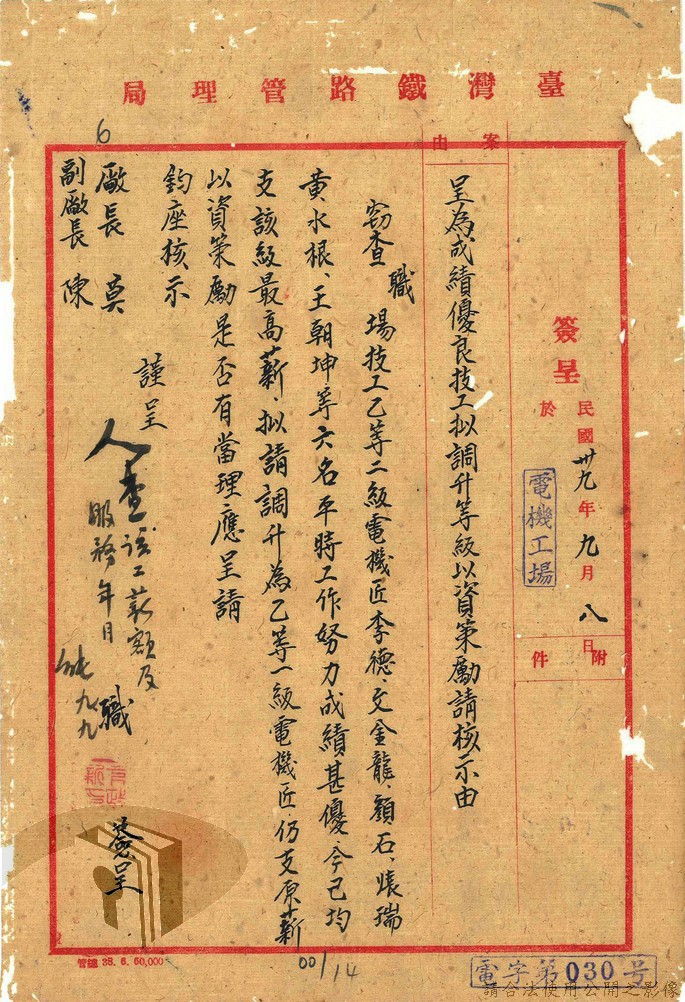 臺灣鐵路管理局
簽呈
民國卅九年九月八日
於
電機工場
附件
案由
呈為成績優良技工拟調升等級以資策勵請核示由
竊查職場技工乙等二級電機匠李德、文金龍、顏石、張瑞
黃水根、王朝坤等六名平時工作努力成績甚優、今已均
支該級最高薪、拟請調升為乙等一級電機匠、仍支原薪
以資策勵是否有當理應呈請
鈞座核示
謹呈
廠長 莫
副廠長 陳
職
簽呈
人查該工薪額及
服務年月
九九
6
管鐵 38. 6. 50,000
00/14
電字第030号
請合法使用公開之影像